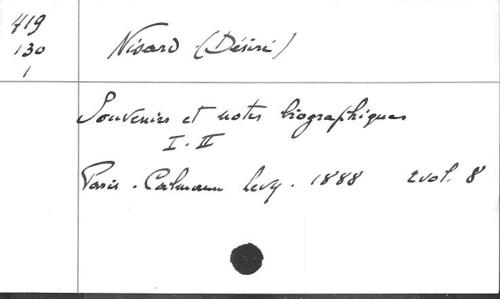 419
130
1
Nisard (Désiré)
Souvenirs et notes biographiques
I. II
Paris. Calmann Levy. 1888 2 vol. 8